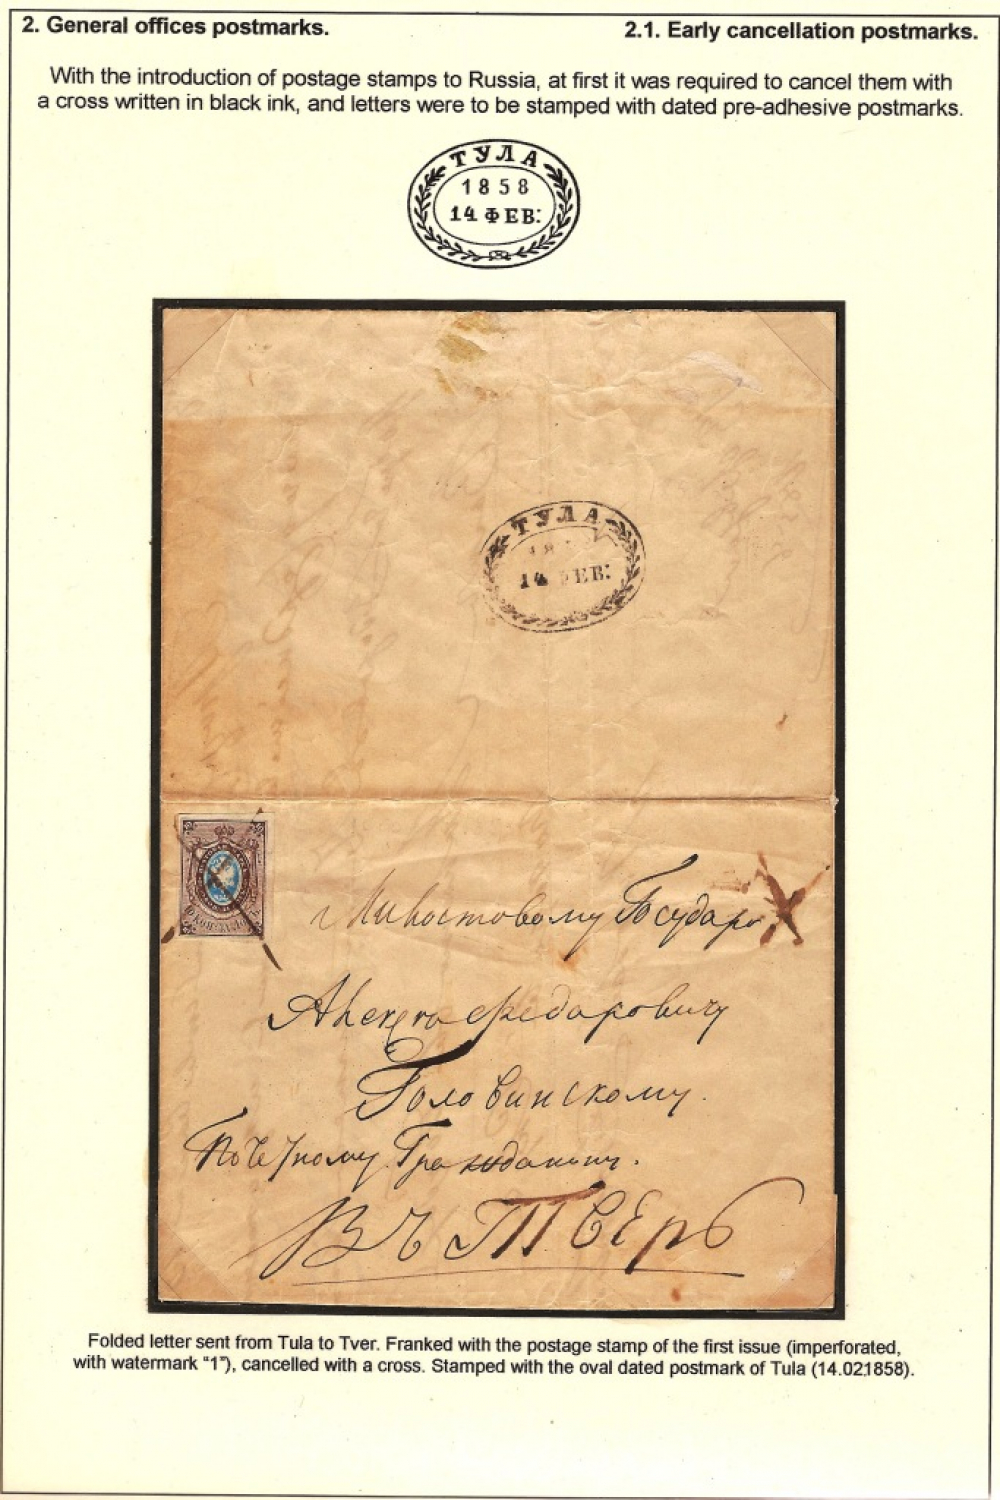 2. General offices postmarks.
2.1. Early cancellation postmarks.
With the introduction of postage stamps to Russia, at first it was required to cancel them with
a cross written in black ink, and letters were to be stamped with dated pre-adhesive postmarks.
ТУЛА
1858
14 ФЕВ:
ТУЛА
14 ФЕВ:
Милостовому Государю
Алексею Федаровичу
Головинскому.
Почетному Гражданину.
Въ Тверь
Folded letter sent from Tula to Tver. Franked with the postage stamp of the first issue (imperforated,
with watermark “1”), cancelled with a cross. Stamped with the oval dated postmark of Tula (14.021858).